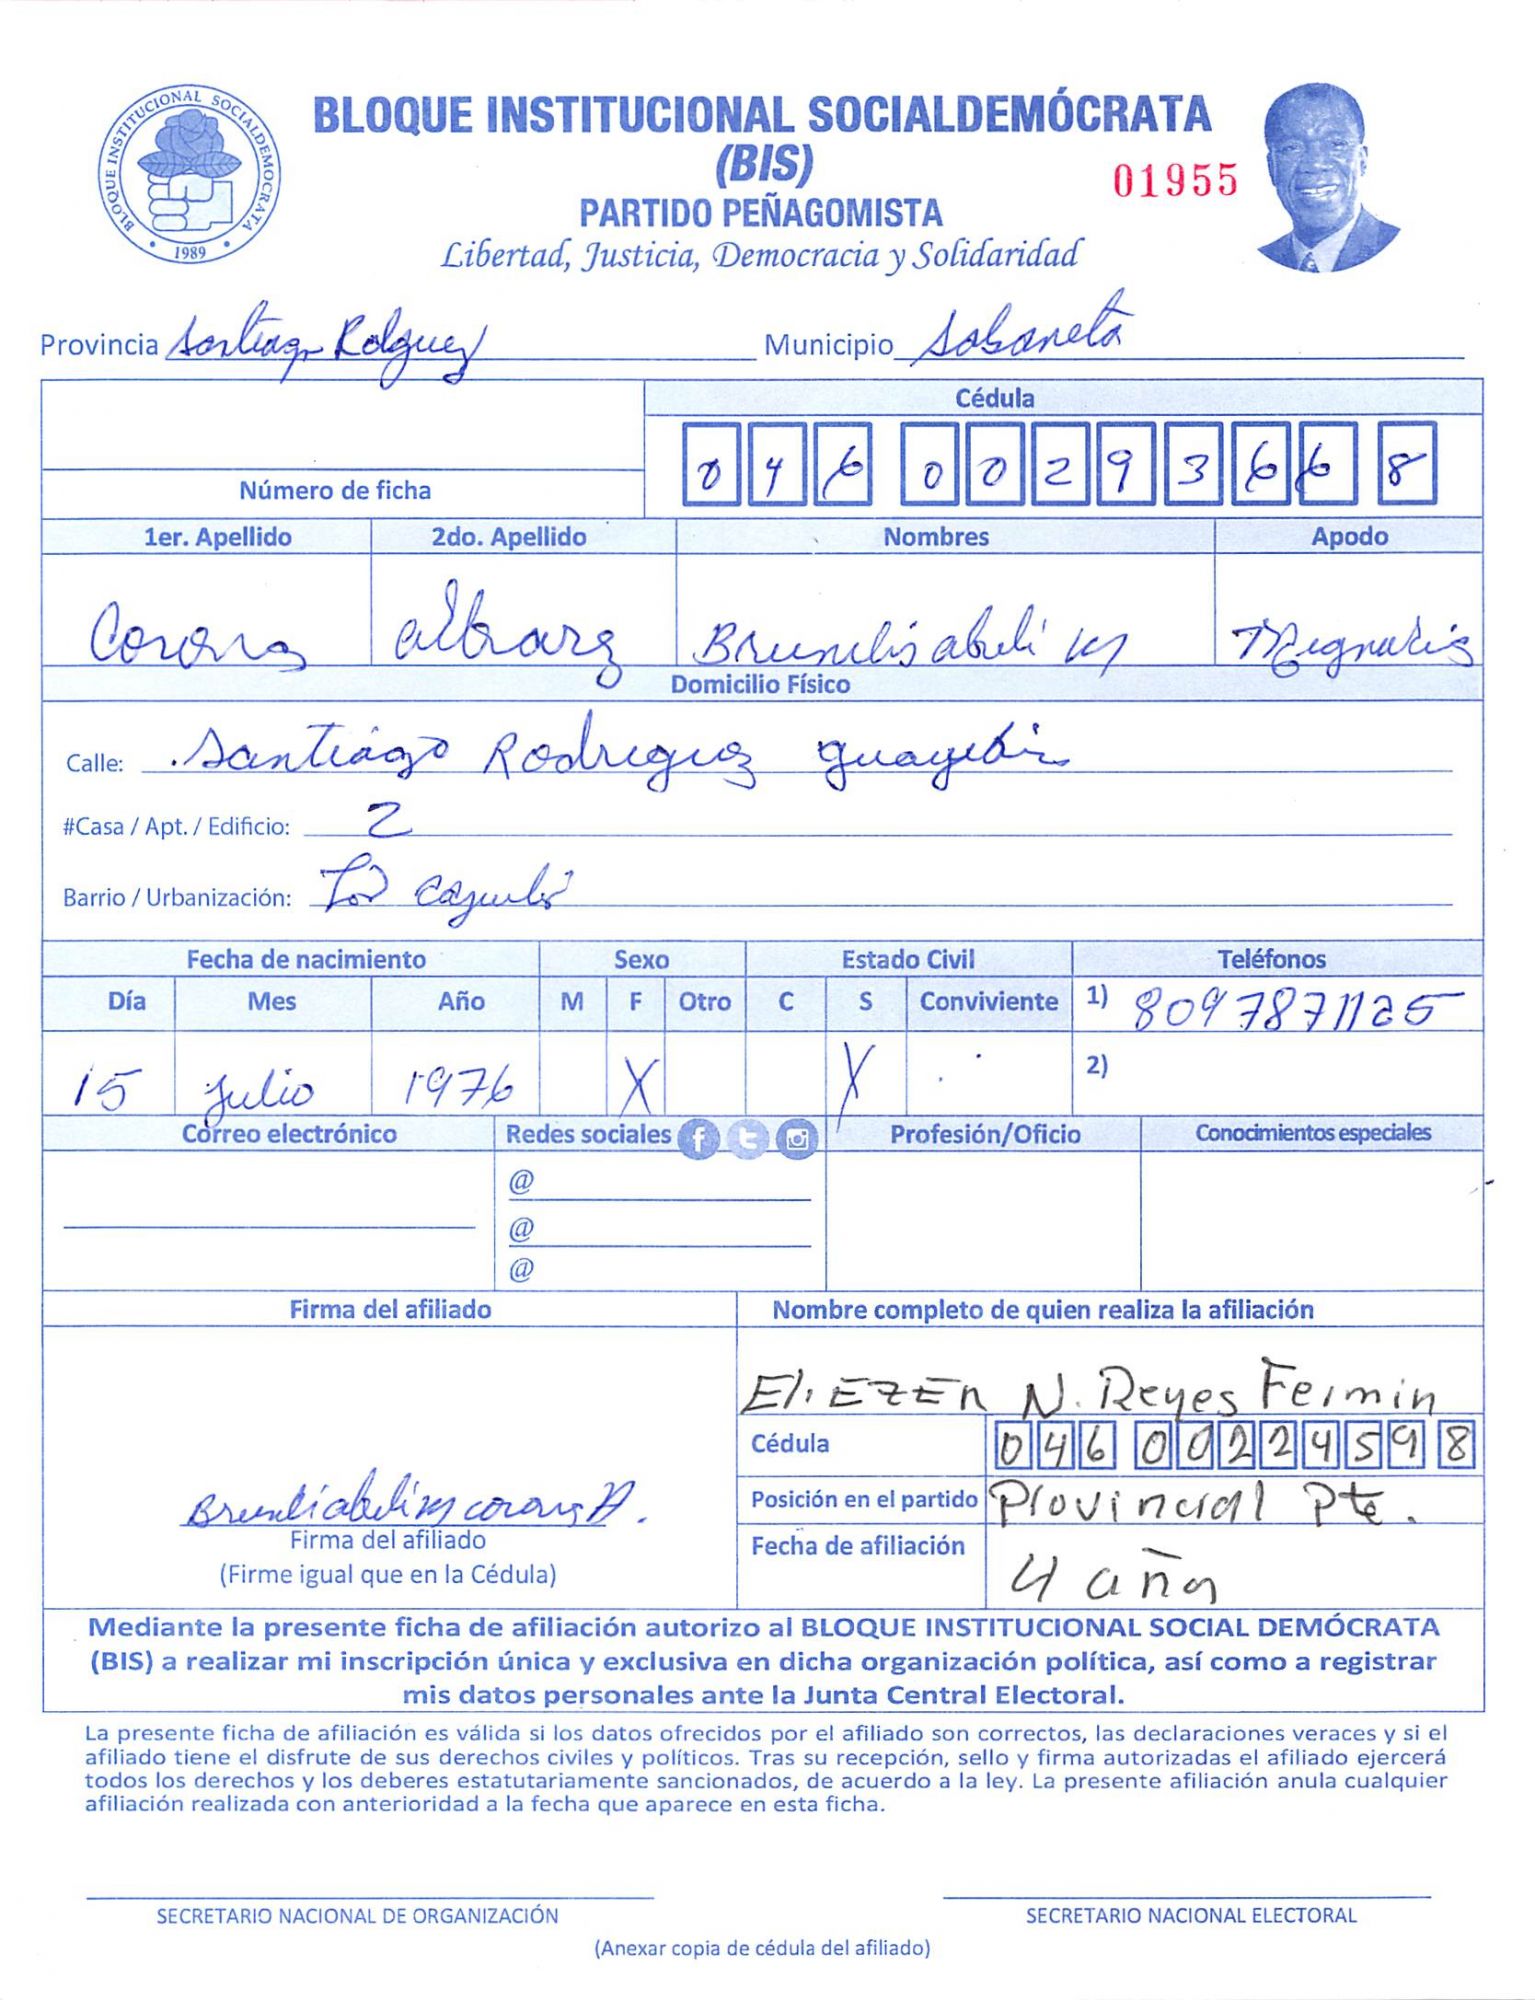 BLOQUE INSTITUCIONAL SOCIALDEMOCRATA
1989
BLOQUE INSTITUCIONAL SOCIALDEMÓCRATA
(BIS)
01955
PARTIDO PEÑAGOMISTA
Libertad, Justicia, Democracia y Solidaridad
Provincia Santiago Municipio Sabaneta
Cédula
046 0029366 8
Número de ficha
1er. Apellido 2do. Apellido Nombres Apodo
Domicilio Físico
Calle: Santiago Rodriguez
#Casa / Apt. / Edificio: 2
Barrio / Urbanización:
Fecha de nacimiento Sexo Estado Civil Teléfonos
Día Mes Año M F Otro C S Conviviente 1) 8097871125
15 Julio 1976 X X 2)
Correo electrónico Redes sociales Profesión/Oficio Conocimientos especiales
@
@
@
Firma del afiliado Nombre completo de quien realiza la afiliación
N. Reyes Fermin
Cédula 046 0022459 8
Posición en el partido Provincial Pte.
Firma del afiliado
Fecha de afiliación 4 año
(Firme igual que en la Cédula)
Mediante la presente ficha de afiliación autorizo al BLOQUE INSTITUCIONAL SOCIAL DEMÓCRATA
(BIS) a realizar mi inscripción única y exclusiva en dicha organización política, así como a registrar
mis datos personales ante la Junta Central Electoral.
La presente ficha de afiliación es válida si los datos ofrecidos por el afiliado son correctos, las declaraciones veraces y si el
afiliado tiene el disfrute de sus derechos civiles y políticos. Tras su recepción, sello y firma autorizadas el afiliado ejercerá
todos los derechos y los deberes estatutariamente sancionados, de acuerdo a la ley. La presente afiliación anula cualquier
afiliación realizada con anterioridad a la fecha que aparece en esta ficha.
SECRETARIO NACIONAL DE ORGANIZACIÓN SECRETARIO NACIONAL ELECTORAL
(Anexar copia de cédula del afiliado)